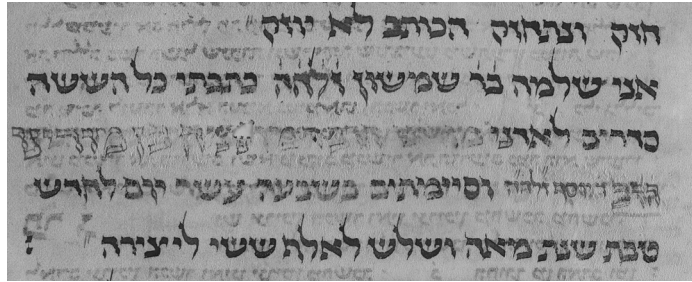 חזק ונתחזק הכותב לא יוזק
אני שלמה בר שמשון זלהה כתבתי כל הששה
סדרים לאדני
וסיימתים בשבעה עשר יום לחדש
טבת שנת מאה ושלש לאלף ששי ליצירה